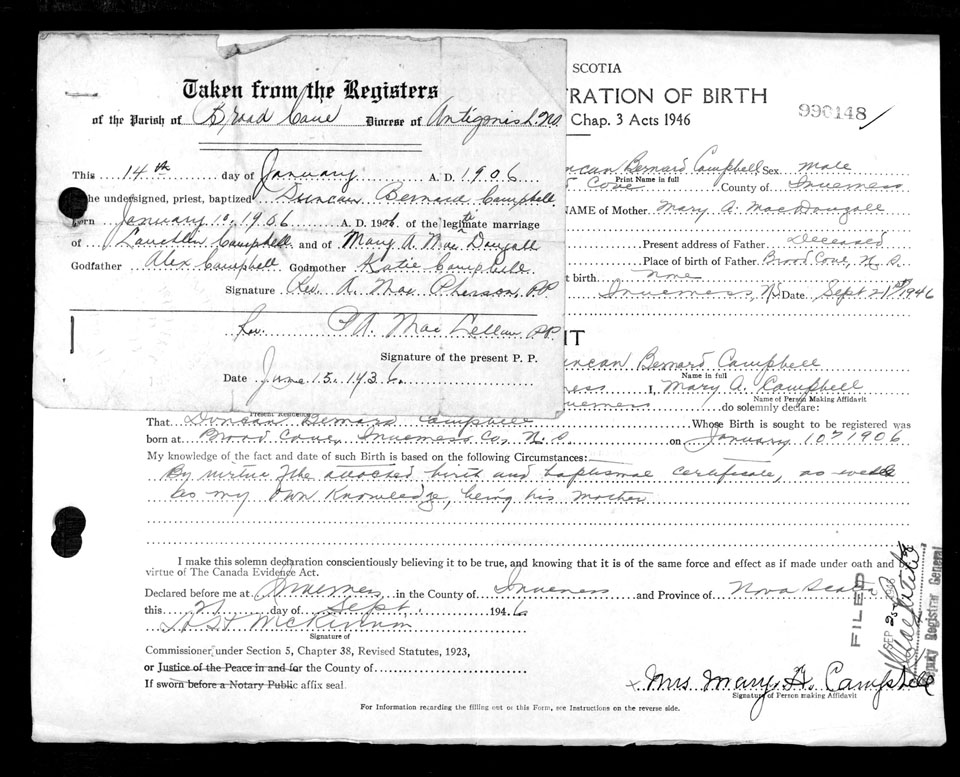 Taken from the Registers
of the Parish of Broad Cove Diocese of Antigonish, N.S.
This 14th day of January A. D. 1906
the undersigned, priest, baptized Duncan Bernard Campbell
Born January 10, 1906 A. D. 1906 of the legitimate marriage
of Lauchlin Campbell and of Mary A. MacDougall
Godfather Alex Campbell Godmother Katie Campbell
Signature Rev. A. MacPherson, P.P.
Rev. P.A. MacLellan P.P.
Signature of the present P. P.
Date June 15. 1936.
SCOTIA
TRATION OF BIRTH
990148
Chap. 3 Acts 1946
ncan Bernard Campbell Sex male
Print Name in full
d Cove County of Inverness
NAME of Mother Mary A. MacDougall
Present address of Father Deceased
Place of birth of Father Broad Cove, N. S.
t birth None
Inverness, N.S. Date Sept 21st 1946
IT
uncan Bernard Campbell
Name in full
ness I, Mary A. Campbell
Name of Person Making Affidavit
Inverness do solemnly declare:
Present Residence
That Duncan Bernard Campbell Whose Birth is sought to be registered was
born at Broad Cove, Inverness Co, N. S. on January 10th 1906
My knowledge of the fact and date of such Birth is based on the following Circumstances:
By virtue of the attached birth and baptismal certificate, as well
as my own knowledge, being his mother
I make this solemn declaration conscientiously believing it to be true, and knowing that it is of the same force and effect as if made under oath and by
virtue of The Canada Evidence Act.
Declared before me at Inverness in the County of Inverness and Province of Nova Scotia
this 21 day of Sept. 1946
McKinnon
Signature of
Commissioner under Section 5, Chapter 38, Revised Statutes, 1923,
or Justice of the Peace in and for the County of
If sworn before a Notary Public affix seal.
FILED
SEP 25 1946
Deputy Registrar General
x Mrs Mary A. Campbell
Signature of Person making Affidavit
For Information regarding the filling out of this Form, see Instructions on the reverse side.